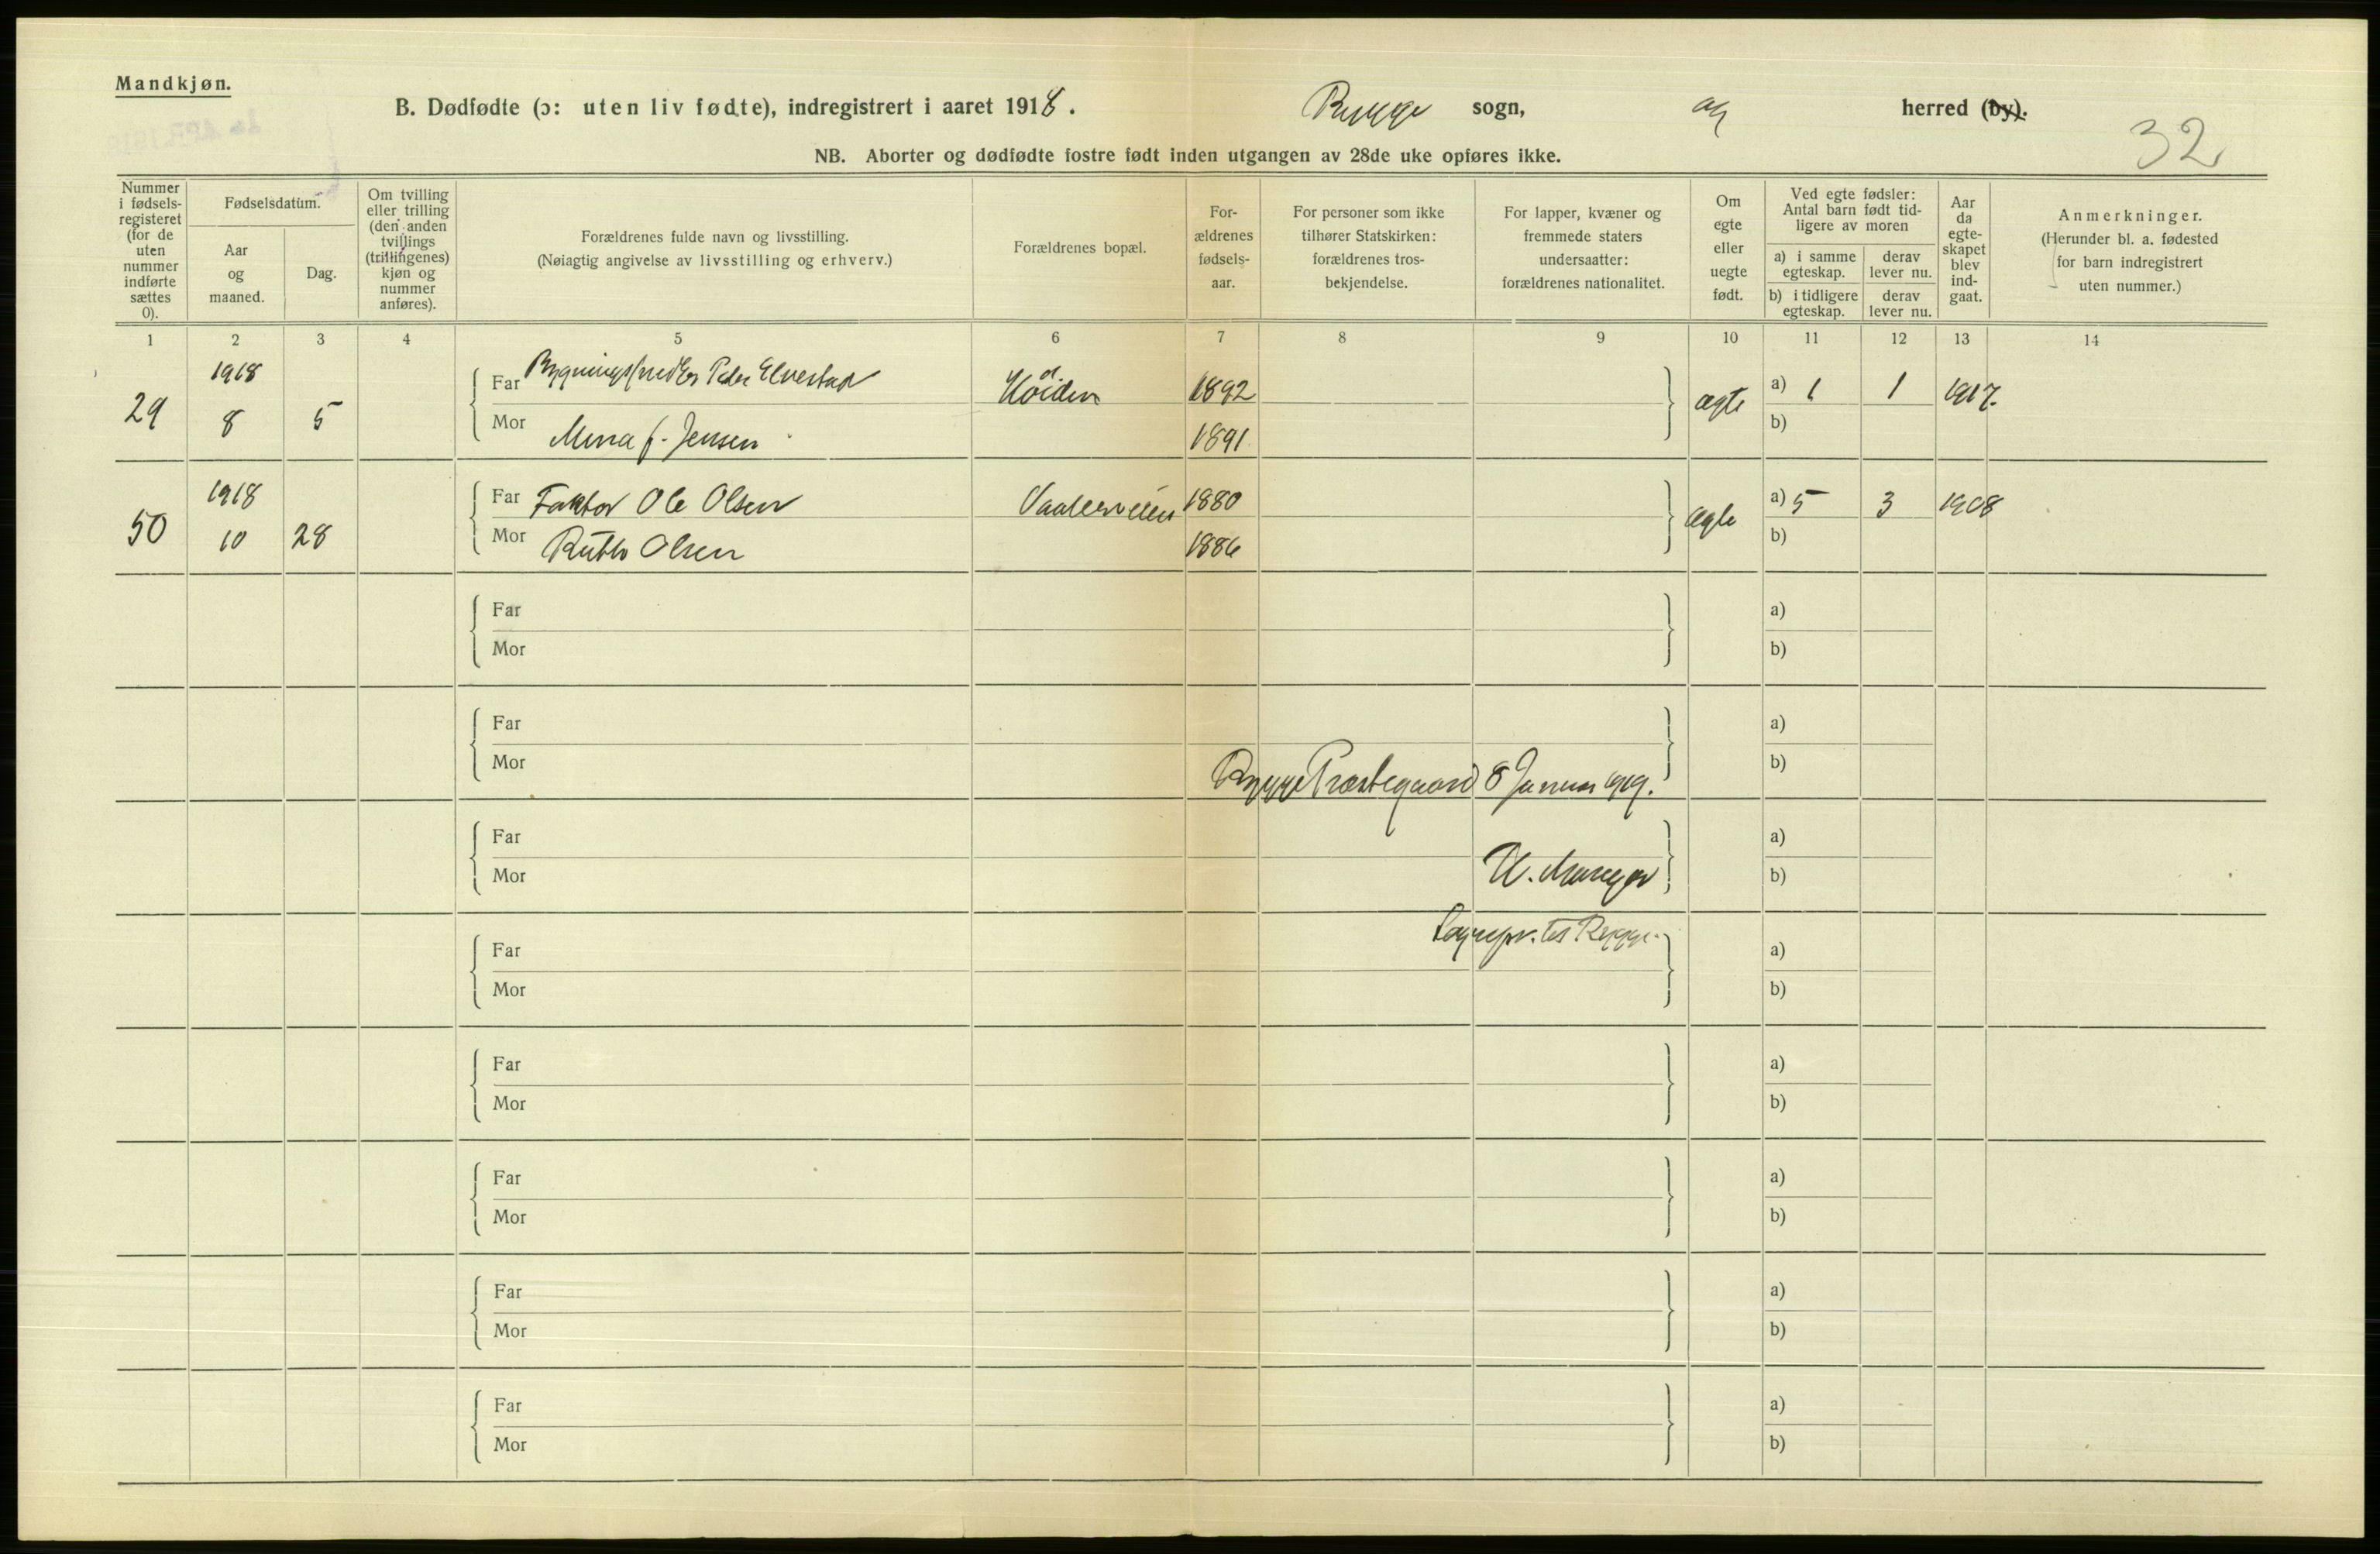 Mandkjøn.
B. Dødfødte (ɔ: uten liv fødte), indregistrert i aaret 1918. Rygge sogn, og herred (by).
32
NB. Aborter og dødfødte fostre født inden utgangen av 28de uke opføres ikke.
Nummer i fødsels-registeret (for de uten nummer indførte sættes 0).
Fødselsdatum.
Aar og maaned.
Dag.
Om tvilling eller trilling (den anden tvillings (trillingenes) kjøn og nummer anføres).
Forældrenes fulde navn og livsstilling.
(Nøiagtig angivelse av livsstilling og erhverv.)
Forældrenes bopæl.
For-ældrenes fødsels-aar.
For personer som ikke tilhører Statskirken: forældrenes tros-bekjendelse.
For lapper, kvæner og fremmede staters undersaatter: forældrenes nationalitet.
Om egte eller uegte født.
Ved egte fødsler: Antal barn født tid-ligere av moren
a) i samme egteskap.
derav lever nu.
b) i tidligere egteskap.
derav lever nu.
Aar da egte-skapet blev ind-gaat.
Anmerkninger.
(Herunder bl. a. fødested for barn indregistrert uten nummer.)
1 2 3 4 5 6 7 8 9 10 11 12 13 14
29 1918 8 5 Far Peder Elvestad 1892 ægte a) 1 1 1917.
Mor f. Jensen 1891 b)
50 1918 10 28 Far Faktor Ole Olsen Vaalerveien 1880 ægte a) 5 3 1908
Mor Ruth Olsen 1886 b)
Far a)
Mor b)
Far a)
Mor b)
Rygge Præstegaard 8 Januar 1919.
Far a)
Mor b)
Sognepr. til Rygge.
Far a)
Mor b)
Far a)
Mor b)
Far a)
Mor b)
Far a)
Mor b)
Far a)
Mor b)